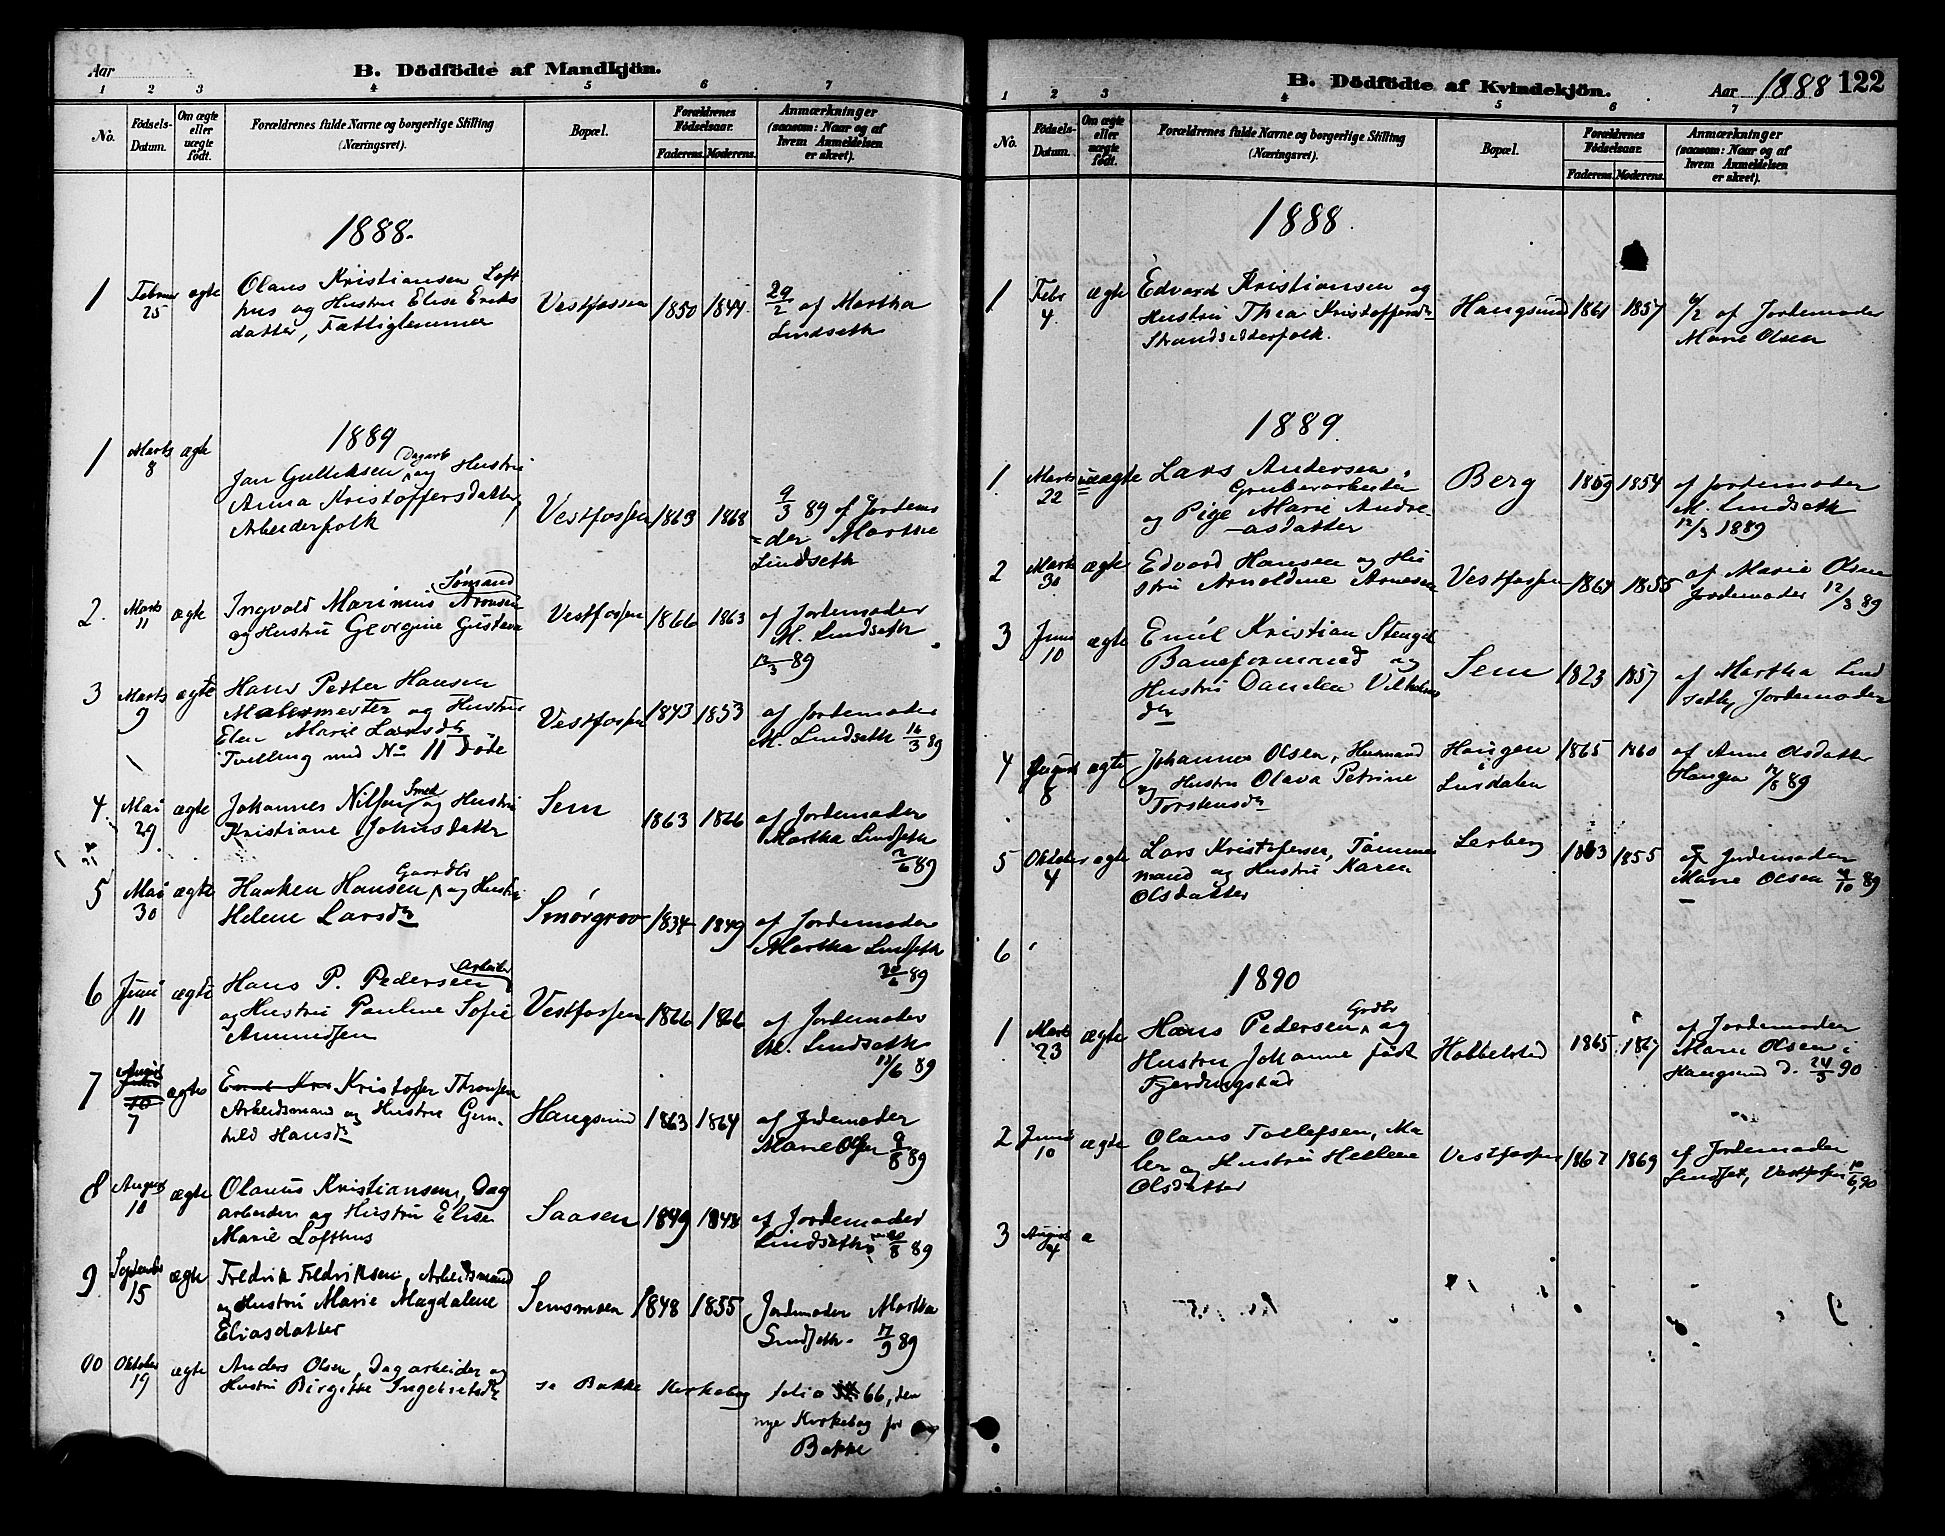 Aar
B. Dödfödte af Mandkjön.
1 2 3 4 5 6 7
No.
Födsels-Datum.
Om ægte eller uægte födt.
Forældrenes fulde Navne og borgerlige Stilling
(Næringsvei).
Bopæl.
Forældrenes Födselsaar.
Faderens. Moderens.
Anmærkninger
(saasom: Naar og af
hvem Anmeldelsen
er skeet).
1888.
1 Februar 25 ægte Olaus Kristiansen Loft
hus og Hustru Elise Eriks
datter, Fattiglemmer
Vestfossen 1850 1844. 29/2 af Martha
Lindseth
1889
1 Marts 8 ægte Jan Gulliksen Dagarb og Hustru
Anna Kristoffersdatter,
Arbeiderfolk
Vestfossen 1863 1868 9/3 89 af Jordemo
=der Marthe
Lindseth
2. Marts 11 ægte Ingvald Marinius Aronsen Sømand
og Hustru Georgine Gustava
Vestfossen 1866 1863 af Jordemoder
M. Lindseth
12/3 89
3 Marts 9 ægte Hans Petter Hansen
Malermester og Hustru
Elen Marie Larsdr
Tvilling med No 11 Døde
Vestfossen 1843 1853 af Jordemoder
M. Lindseth 16/3 89
4. Mai 29 ægte Johannes Nilsen Smed og Hustru
Kristiane Johnsdatter
Sem 1863 1866 af Jordemoder
Martha Lindseth
2/6 89
5 Mai 30 ægte Haaken Hansen Gaardbr og Hustru
Helene Larsdr
Smørgrav 1834 1849 af Jordemoder
Martha Lindseth
30/6 89
6 Juni 11 ægte Hans P. Pedersen Arbeider
og Hustru Pauline Sofie
Amundsen
Vestfossen 1866 1866 af Jordemoder
M. Lindseth
12/6 89
7 August 7 ægte Kristoffer Thronsen
Arbeidsmand og Hustru Gun-
hild Hansdr
Haugsund 1863 1864 af Jordemoder
Marie Olsen 9/8 89
8 August 10 ægte Olaus Kristiansen, Dag
arbeider og Hustru Elise
Marie Lofthus
Saasen 1849 1848 af Jordemoder
Lindseth 20/8 89
9 September 15 ægte Fredrik Fredriksen, Arbeidsmand
og Hustru Marie Magdalene
Eliasdatter
Semsmoen 1848 1855 Jordemoder Martha
Lindseth. 17/9 89
10 Oktober 19 ægte Anders Olsen, Dagarbeider og
Hustru Birgitte Ingebretsdr
se Bakke Kirkebog folio 66, den
nye Kirkebog for
Bakke
B. Dödfödte af Kvindekjön.
Aar 1888 122
1 2 3 4 5 6 7
No.
Födsels-Datum.
Om ægte eller uægte födt.
Forældrenes fulde Navne og borgerlige Stilling
(Næringsvei).
Bopæl.
Forældrenes Födselsaar.
Faderens. Moderens.
Anmærkninger
(saasom: Naar og af
hvem Anmeldelsen
er skeet).
1888.
1 Febr 4. ægte Edvard Kristiansen og
Hustru Thea Kristoffersdr
Strandsidderfolk.
Haugsund 1861 1857 6/2 af Jordemoder
Marie Olsen
1889.
1. Marts 22 uægte Lars Andersen,
Grubearbeider
og Pige Marie Andre-
-asdatter
Berg 1859 1854 af Jordemoder
M. Lindseth
12/3 1889
2 Marts 30 ægte Edvard Hansen og Hu
stru Arnoldine Arnesen
Vestfossen 1864 1855 af Marie Olsen
Jordemoder 12/3 89
3 Juni 10 ægte Emil Kristian Stengel
Baneformand og
Hustru Vilhelms
dr
Sem 1823 1857 af Martha Lind
seth, Jordemoder
4 August 8 ægte Johannes Olsen, Husmand
og Hustru Olava Petrine
Torstensdr
Haugen
i
1865 1860 af Anne Olsdatter
Haugen 12/8 89
5 Oktober 4 ægte Lars Kristofersen, Tømmer
mand og Hustru Karen
Olsdatter
Lerberg 1863 1855 af Jordemoder
Marie Olsen 4/10 89
6
1890
1 Marts 23 ægte Hans Pedersen Grdbr og
Hustru Johanne født
Fjerdingstad
Hobbelstad 1865 1867 af Jordemoder
Marie Olsen i
Haugsund d. 24/3 90
2 Juni 10 ægte Olaus Tollefsen, Ma
ler og Hustru Hellene
Olsdatter
Vestfossen 1867 1869 af Jordemoder
Lindset, Vestfossen 10/6 90
3 August 4 æ